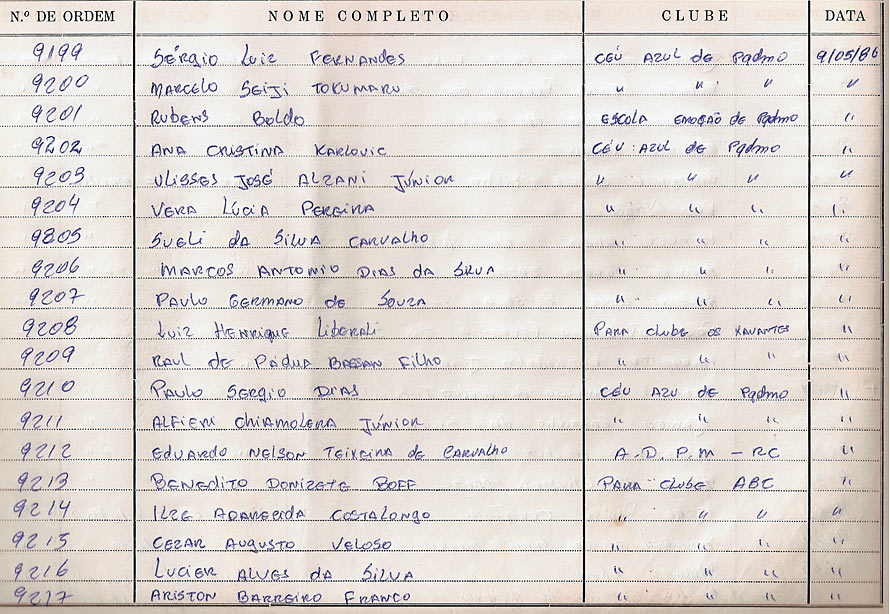 N.º DE ORDEM NOME COMPLETO CLUBE DATA
9199 Sérgio Luiz FERNANDES CÉU AZUL de Pqdmo 9/05/86
9200 MARCELO SEIJI TOKUMARU " " " "
9201 RUBENS BOLDO ESCOLA EMOÇÃO de Pqdmo "
9202 ANA CRISTINA KARLOVIC CÉU AZUL de Pqdmo "
9203 ULISSES JOSÉ ALZANI JÚNIOR " " " "
9204 VERA LÚCIA PEREIRA " " " "
9205 SUELI da SILVA CARVALHO " " " "
9206 MARCOS ANTONIO DIAS da SILVA " " " "
9207 PAULO GERMANO de SOUZA " " " "
9208 LUIZ HENRIQUE LIBERALI PARA CLUBE OS XAVANTES "
9209 RAUL de PÁDUA BASSAN Filho " " " "
9210 PAULO SERGIO DIAS CÉU AZU de Pqdmo "
9211 ALFIERI CHIAMOLERA JÚNIOR " " " "
9212 EDUARDO NELSON TEIXEIRA de CARVALHO A.D.P.M - RC "
9213 BENEDITO DONIZETE BOFF PARA CLUBE ABC "
9214 ILZE APARECIDA COSTALONGO " " " "
9215 CEZAR AUGUSTO VELOSO " " " "
9216 LUCIER ALVES da SILVA " " " "
9217 ARISTON BARREIRO FRANCO " " " "